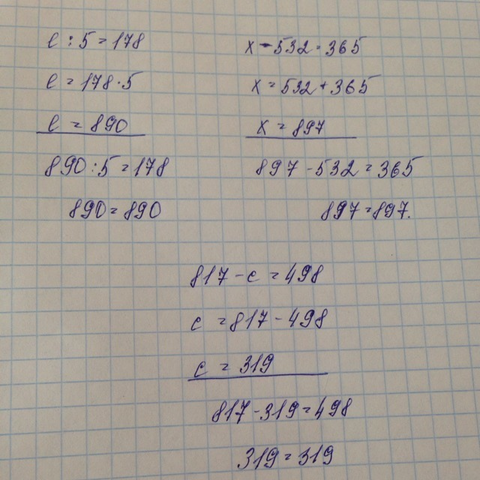 c : 5 = 178
c = 178 · 5
c = 890
890 : 5 = 178
890 = 890
x - 532 = 365
x = 532 + 365
x = 897
897 - 532 = 365
897 = 897.
817 - c = 498
c = 817 - 498
c = 319
817 - 319 = 498
319 = 319